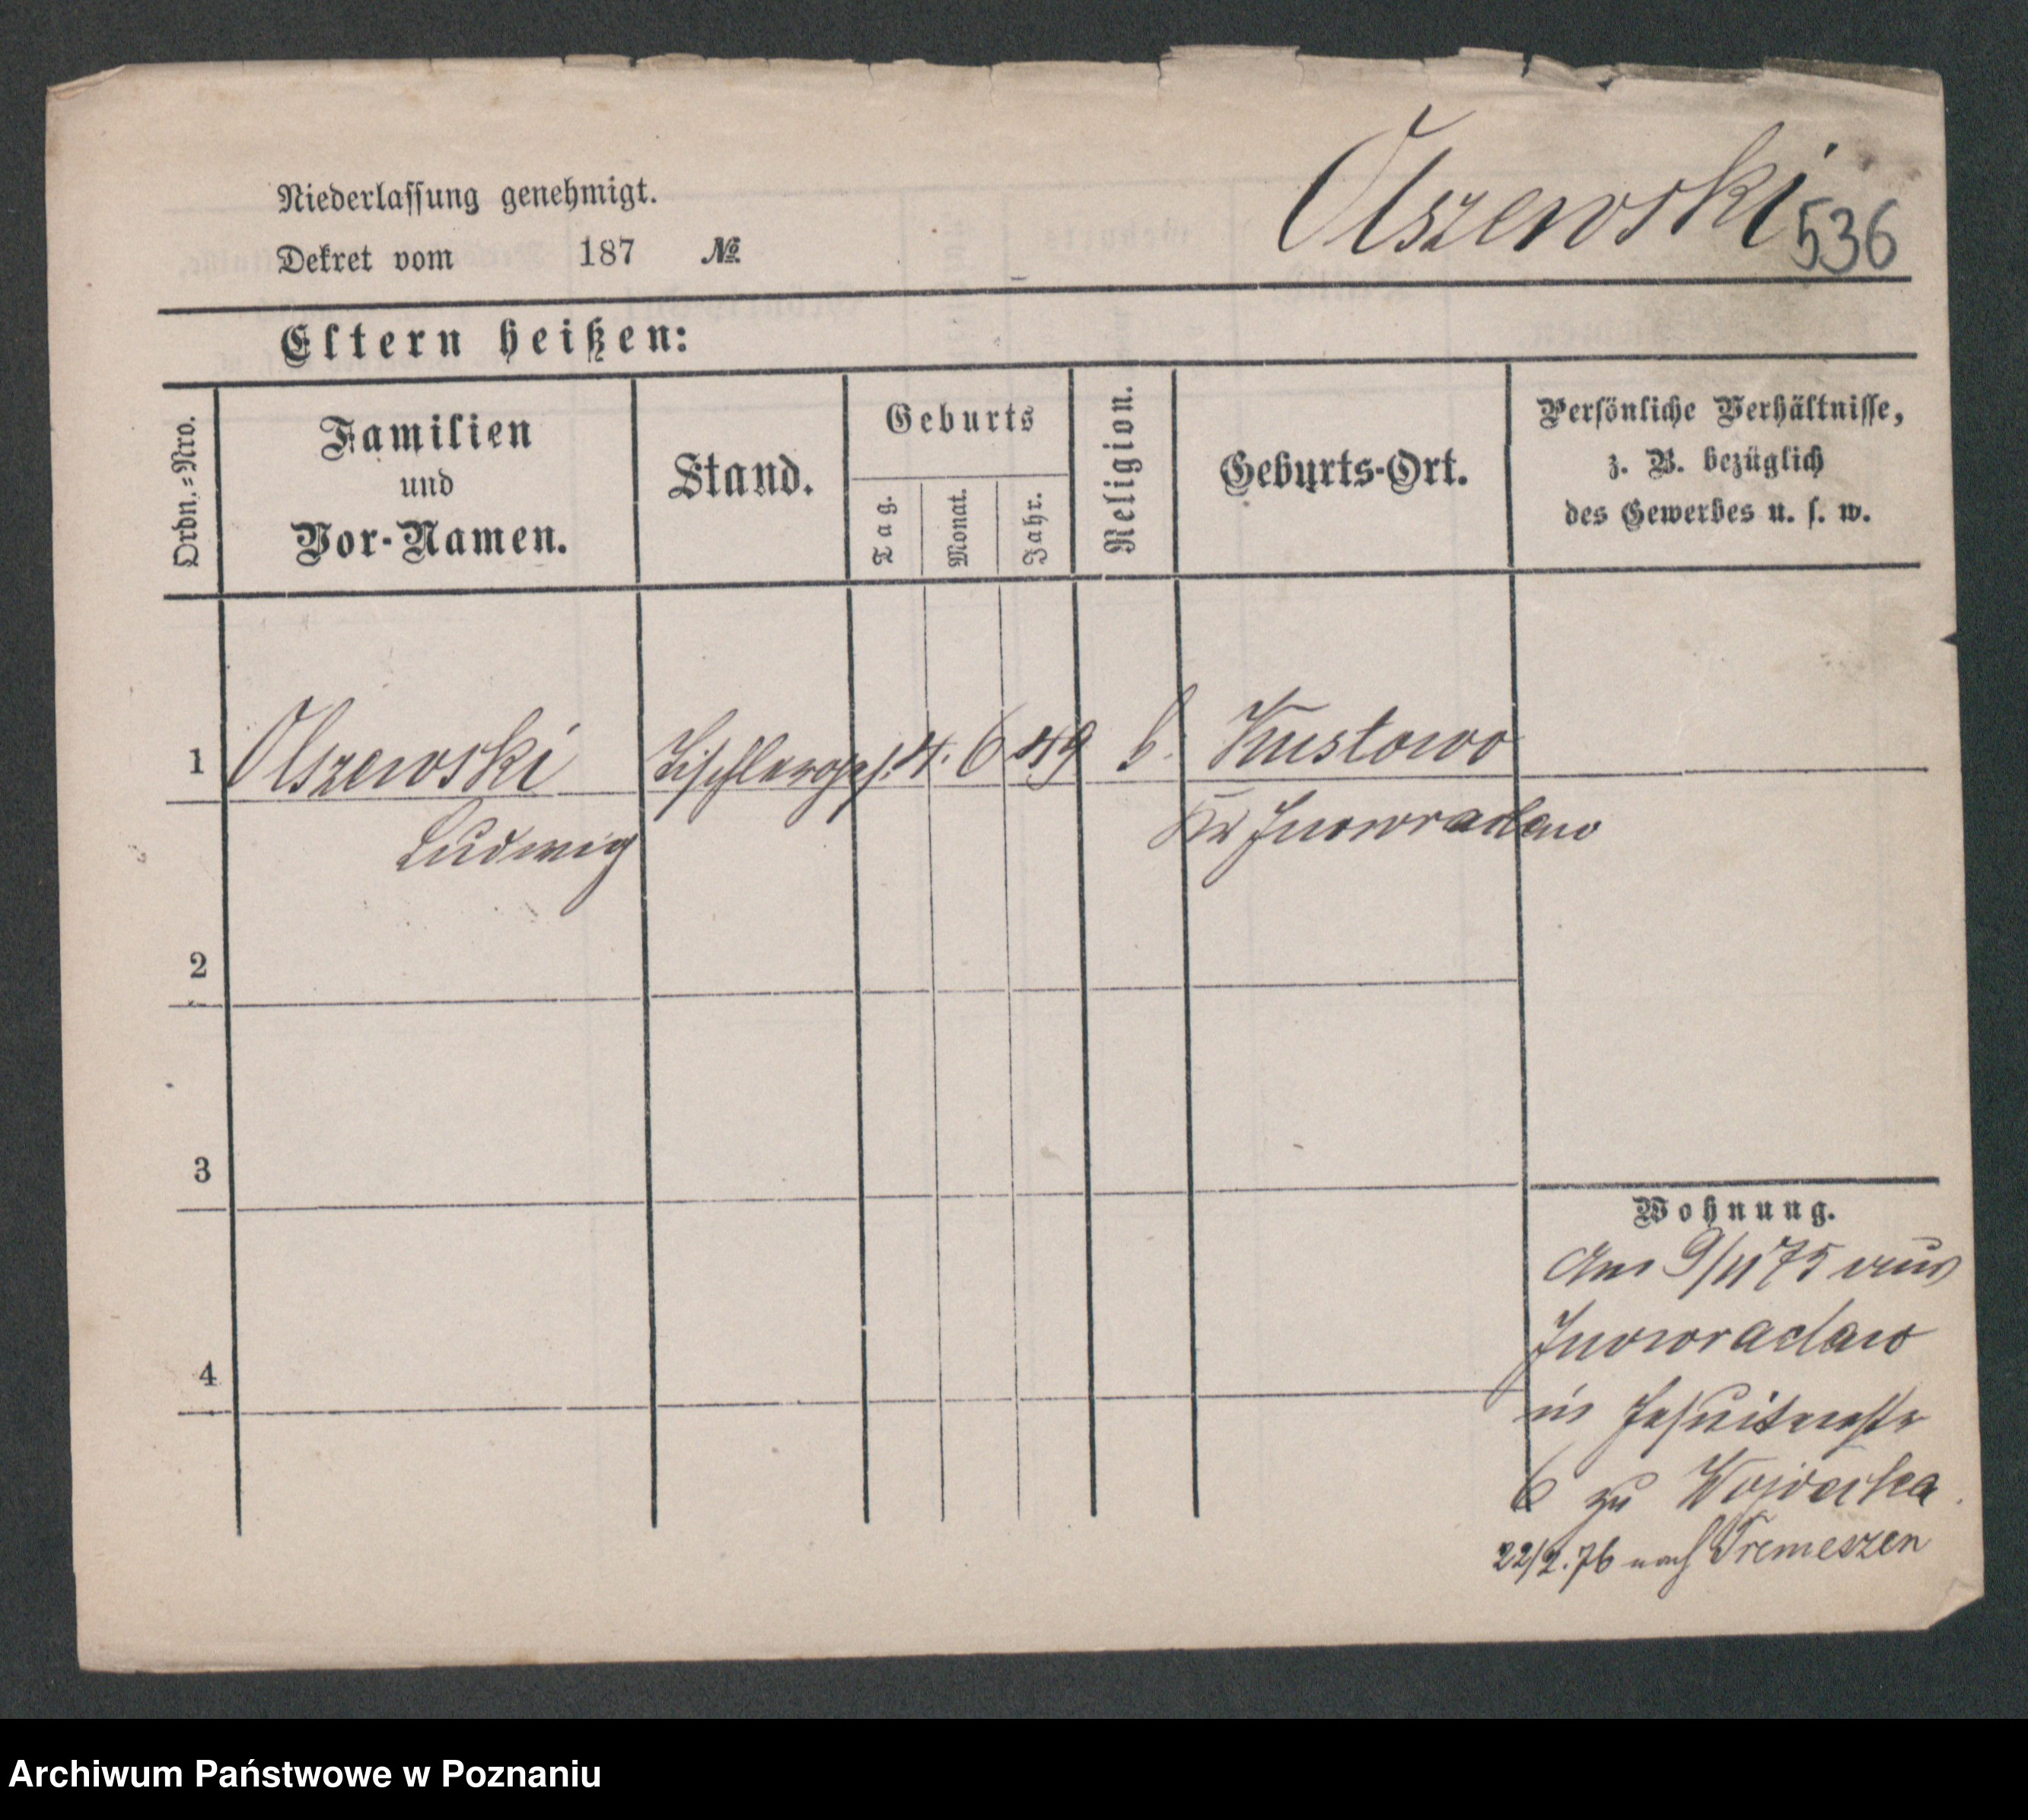 Niederlassung genehmigt.
Dekret vom 187 №
Olszewski 536
Eltern heißen:
Ordn.=Nro.
Familien
und
Vor-Namen.
Stand.
Geburts
Tag.
Monat.
Jahr.
Religion.
Geburts-Ort.
Persönliche Verhältnisse,
z. B. bezüglich
des Gewerbes u. s. w.
1 Olszewski Tischlerges. 4. 6 49 k.
Ludwig
Kr Inowraclaw
2
3
4
Wohnung.
Am 9/11 75 aus
Inowraclaw
in Jesuitenstr
6 zu
22/2.76 nach Tremeszen
Archiwum Państwowe w Poznaniu